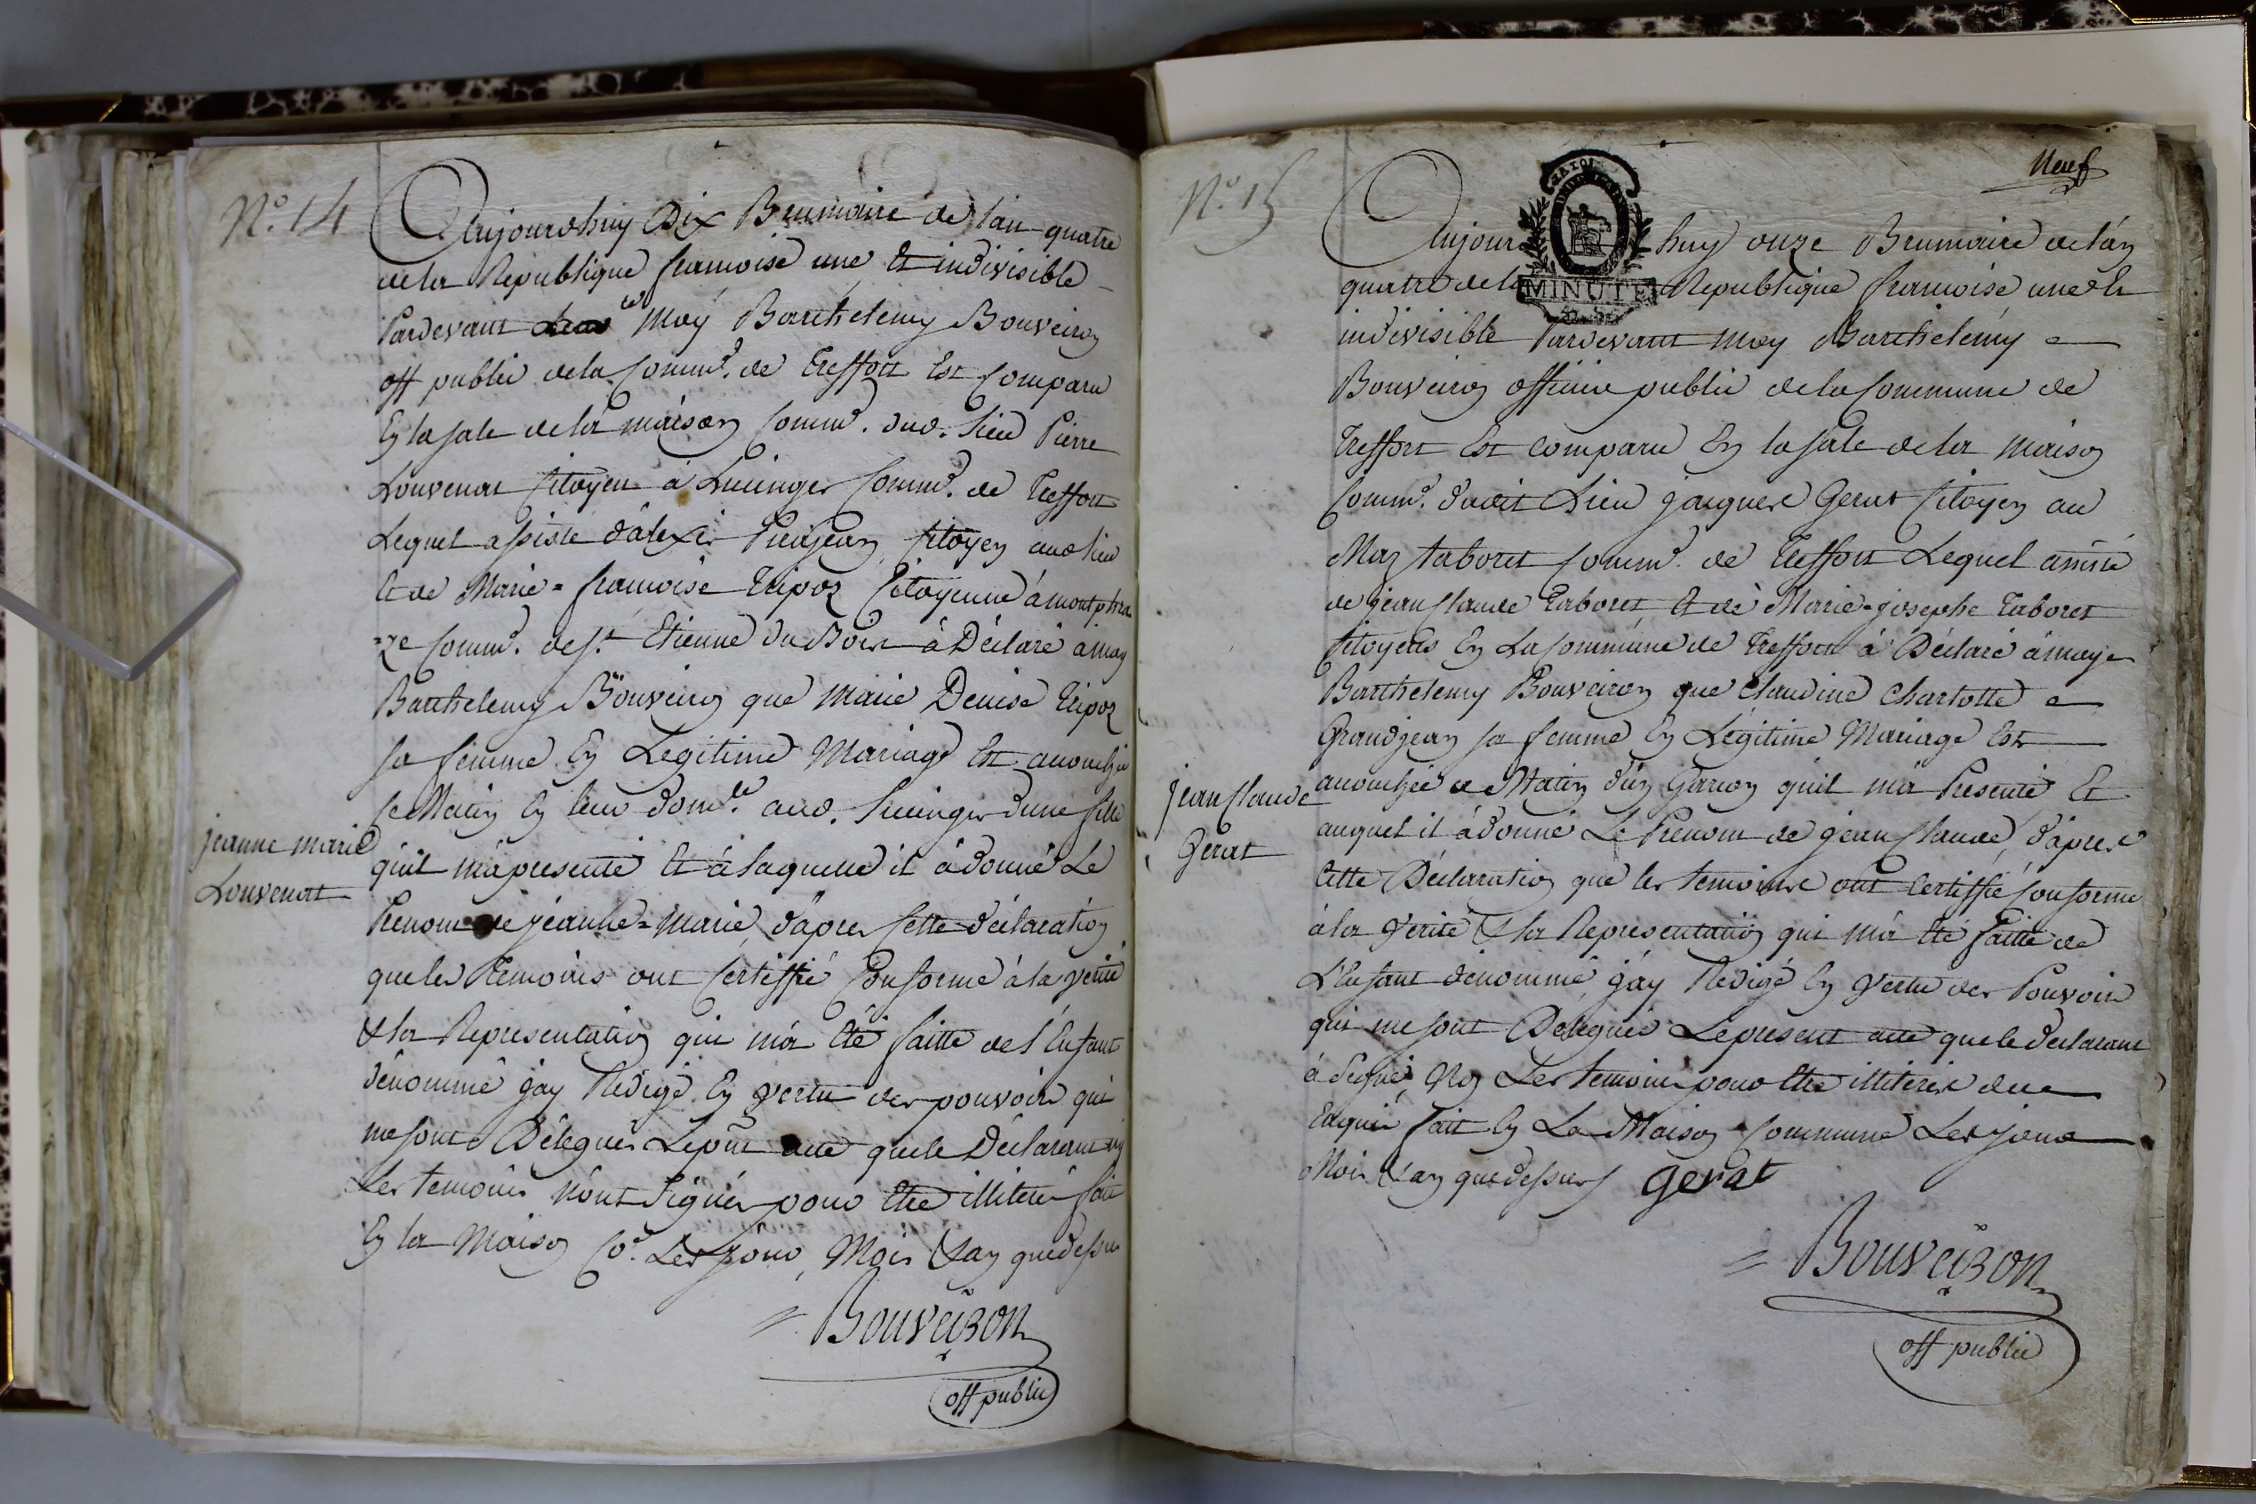 N.º 14
Aujourdhuy Dix Brumaire de l'an quatre
de la Republique francoise une et indivisible
Pardevant Moy Barthelemy Bouveiron
off public de la Comm.e de Treffort Est Comparu
En la sale de la maison Comm.e dud. lieu Pierre
Louvenat Citoyen à Lucinger Comm.e de Treffort
Lequel assisté d'alexis Citoyen aud lieu
Et de Marie=francoise Tripoz Citoyenne à montphra
=ze Comm.e de St Etienne du Bois à Déclaré à moy
Barthelemy Bouveiron que Marie Denise Tripoz
sa femme En Legitime Mariage Est accouchée
ce Matin En leur dom.le aud. Lucinger d'une fille
qu'il m'a presenté Et à laquelle il à donné Le
Prenom de jeanne=marie, d'apres Cette déclaration
que les Temoins ont Certiffié Conforme à la verité
& la Representation qui m'a Eté faitte de l'Enfant
dénommé j'ay Redigé En vertu des pouvoirs qui
me sont Délegués Le pnt acte que le Déclarant ny
Les temoins n'ont Signés pour Etre illiterés fait
En la Maison Co.e Les jour, Mois & an que dessus
jeanne marie
Louvenat
Bouveiron
off public
Neuf
N.º 15
MINUTE
Aujour huy onze Brumaire de l'an
quatre de la Republique francoise une et
indivisible Pardevant moy Barthelémy
Bouveiron officier public de la Commune de
Treffort Est comparu En la sale de la Maison
Comm.e dudit Lieu jacques Gerat Citoyen au
Maz taboret Comm.e de Treffort Lequel assisté
de jean Claude Taboret Et de Marie=josephe Taboret
Citoyens En La Commune de Treffort à Déclaré à moy
Barthelemy Bouveiron que Claudine Charlotte
Grandjean sa femme En Légitime Mariage Est
accouchée ce Matin d'un Garcon qu'il m'a Presenté Et
auquel il à donné Le Prenom de jean Claude, d'apres
Cette Déclaration que les temoins ont Certiffié Conforme
à la Verité & la Representation qui m'a Eté faitte de
L'Enfant dénommé j'ay Redigé En Vertu des Pouvoirs
qui me sont Delegués Le present acte que le declarant
à Signé, Non Les temoins pour Etre illiterés de ce
Enquis fait En La Maison Commune Les jour
Mois & an que dessus Gerat
jean Claude
Gerat
Bouveiron
off public